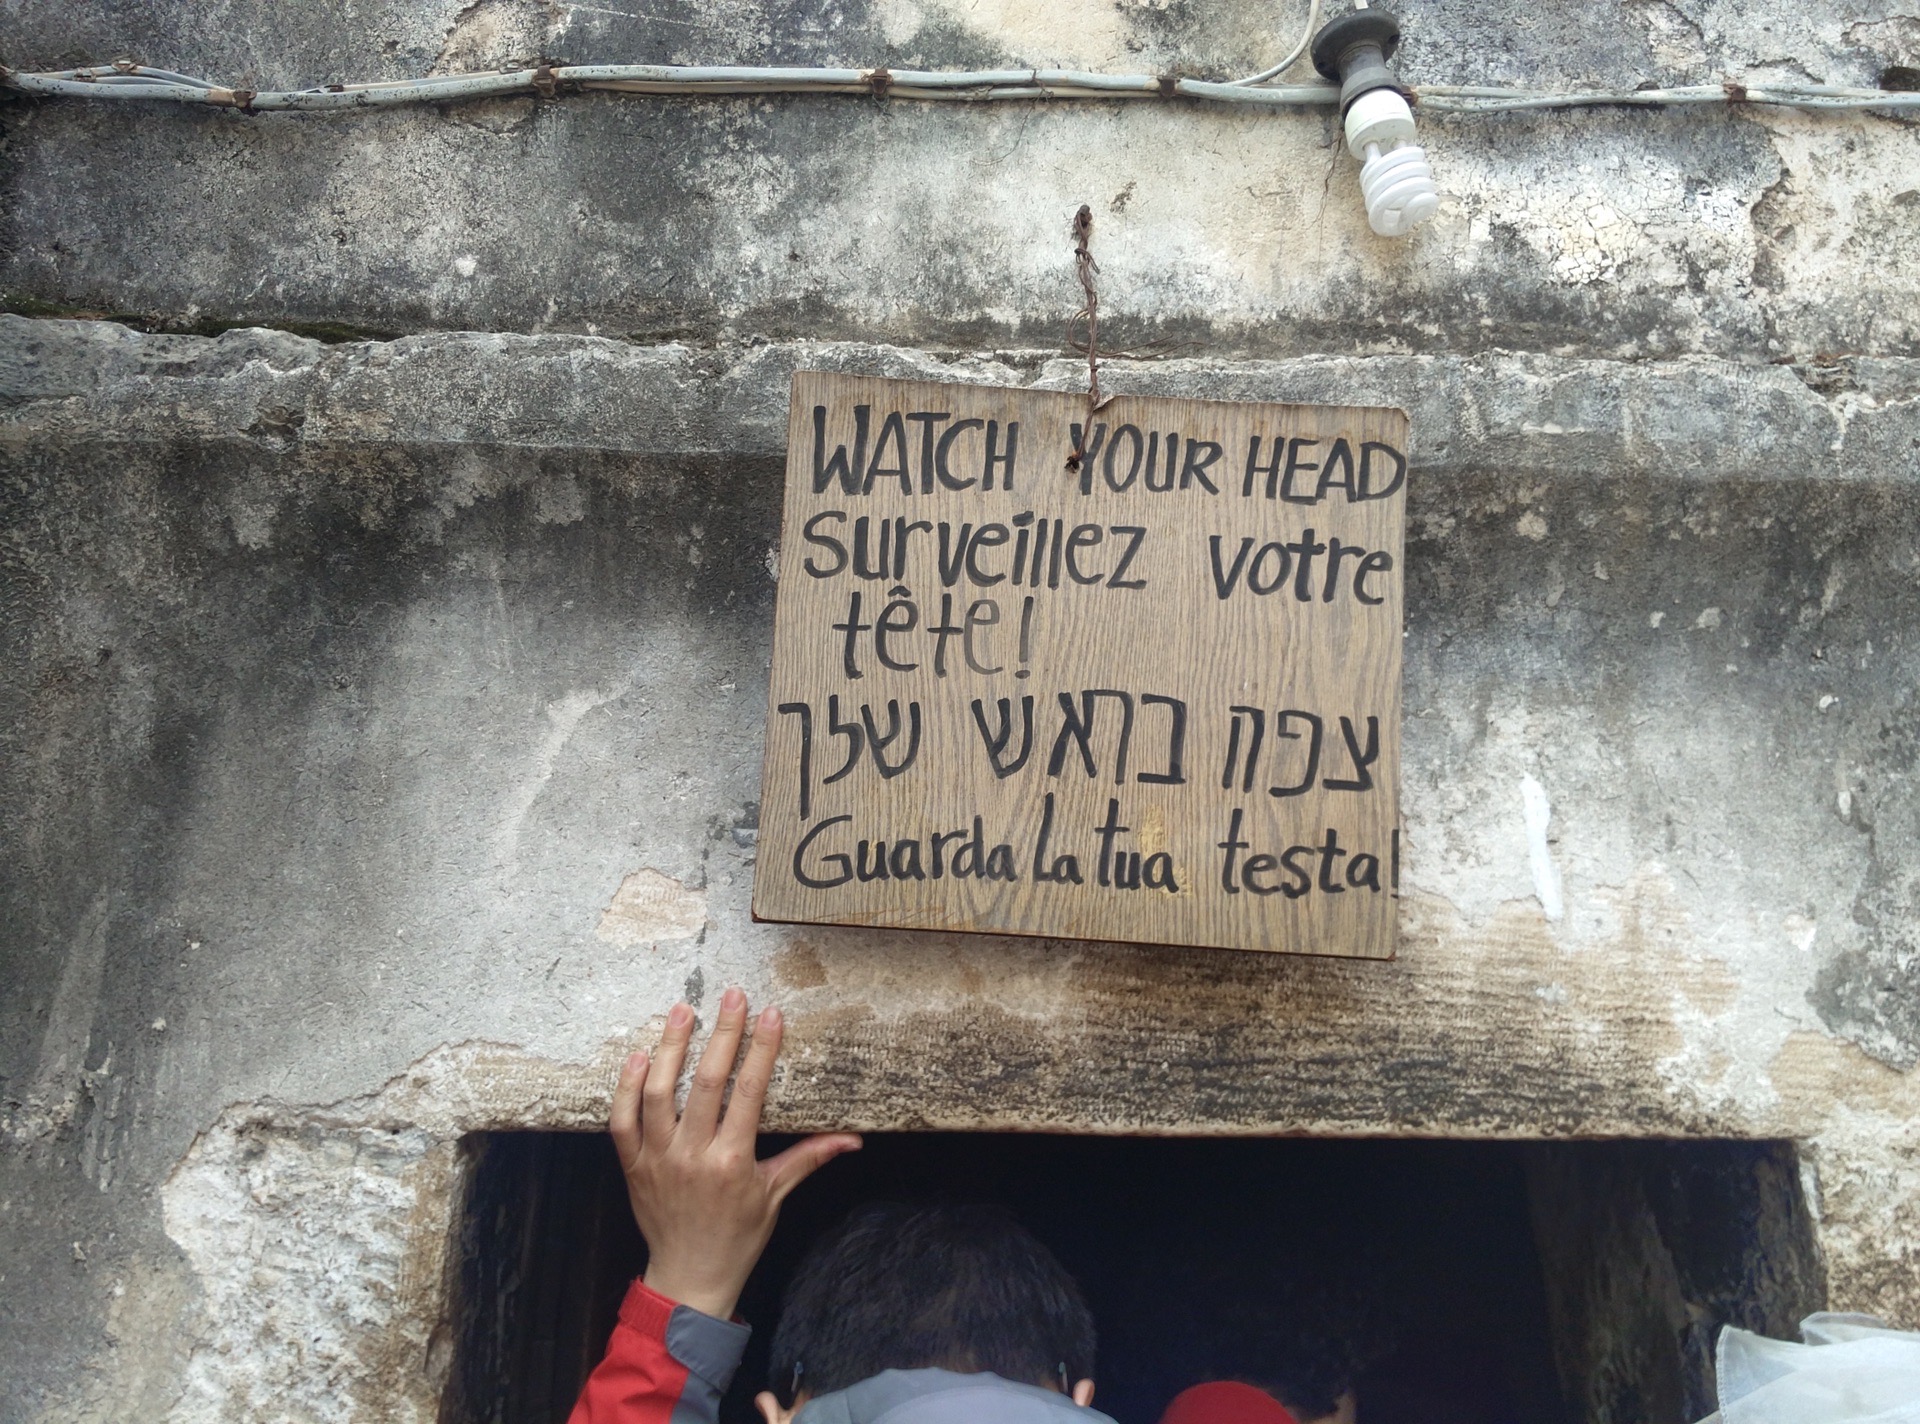 WATCH YOUR HEAD
Surveillez votre
tête!
צפה בראש שלך
Guarda La tua testa!